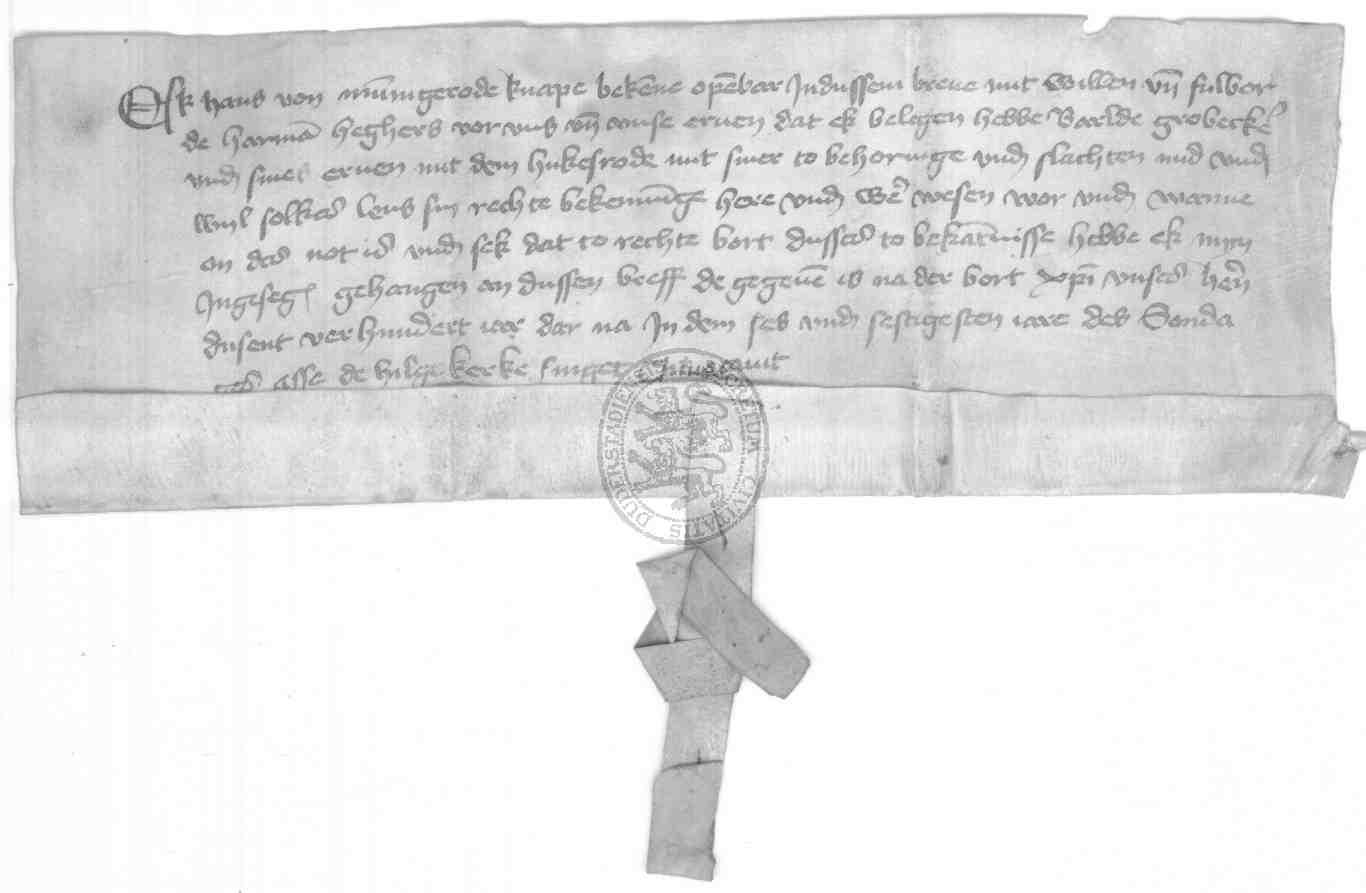 Ek hans von mīnigerode knape bekēne opēbar Indussem breue mit willen vn̄ fulbor
de harmā heghers vor vns vn̄ vnse eruen dat ek belegen hebbe Barlde grobeckē
vnd sines eruen mit dem hukesrode mit siner to behoringe vnd slachten nud vnd
wyl solkes lens sin rechte bekennīge here vnd wer wesen wor vnd wanne
on des not is vnd sek dat to rechte bort dusses to bekātnisse hebbe ek myn
Ingesegl gehangen an dussen breff de gegeuē is na der bort xpi vnses hern
dusent verhundert iar dar na In dem ses vnd sestigesten iare des Sonda
ges alse de hilge kerke singet Inuocauit
DUDERSTADIENSIS CIVITATIS